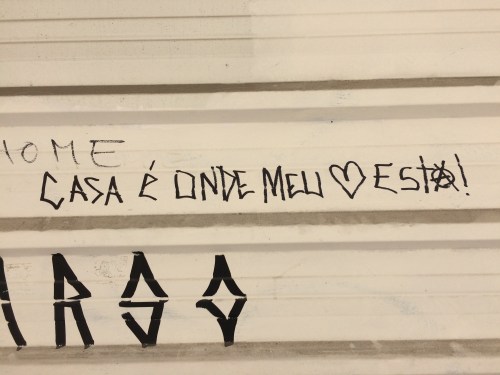 HOME
CASA É ONDE MEU ♡ ESTÁ!